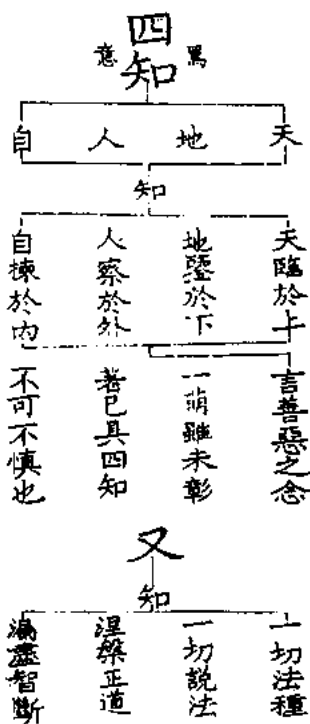 四知
寫
意
天
地
人
自
知
天臨於上
地鑒於下
人察於外
自揀於內
言善惡之念
一萌雖未彰
著已具四知
不可不慎也
又
知
一切法種
一切說法
涅槃正道
漏盡智斷